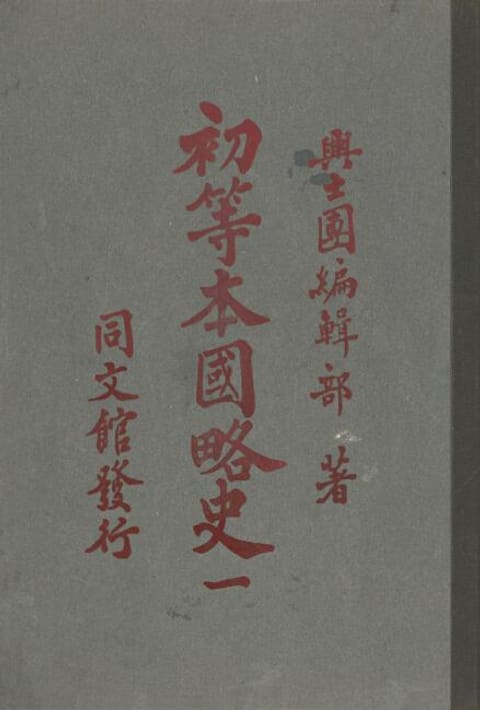 興士團編輯部 著
初等本國略史 一
同文館發行